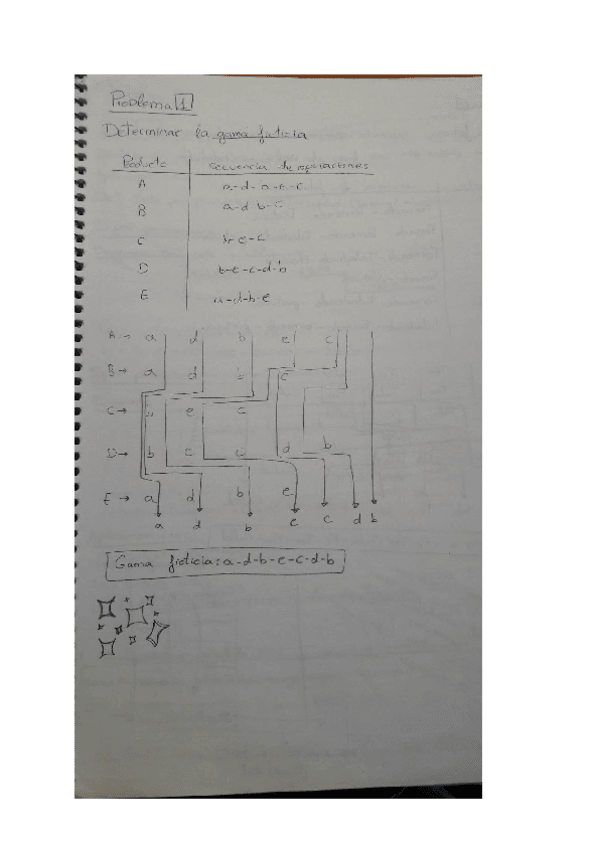 Problema 1
Determinar la gama ficticia
Producto secuencia de operaciones
A a-d-b-e-c
B a-d-b-c
C b-e-c
D b-e-c-d-b
E a-d-b-e
A→ a d b e c
B→ a d b c
C→ b e c
D→ b e c d b
E→ a d b e
a d b e c d b
Gama ficticia: a-d-b-e-c-d-b